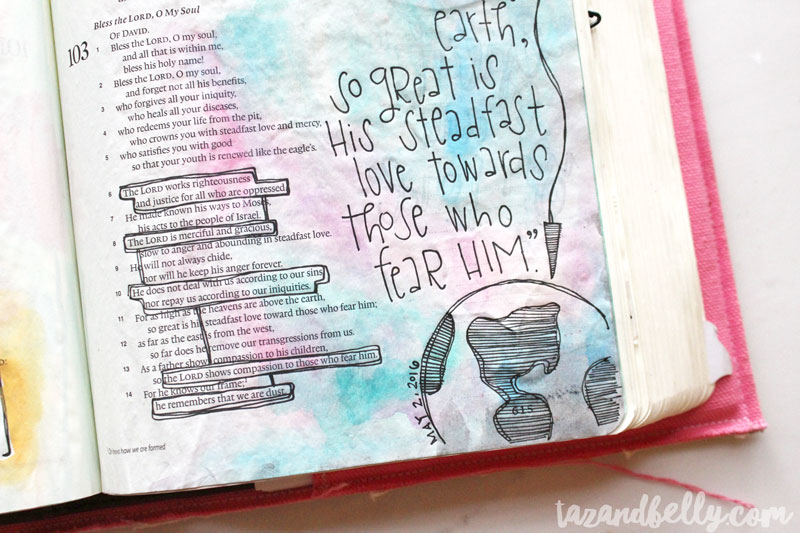 Bless the LORD, O My Soul
103
OF DAVID.
1 Bless the LORD, O my soul,
and all that is within me,
bless his holy name!
2 Bless the LORD, O my soul,
and forget not all his benefits,
3 who forgives all your iniquity,
who heals all your diseases,
4 who redeems your life from the pit,
who crowns you with steadfast love and mercy,
5 who satisfies you with good
so that your youth is renewed like the eagle's.
6 The LORD works righteousness
and justice for all who are oppressed.
7 He made known his ways to Moses,
his acts to the people of Israel.
8 The LORD is merciful and gracious,
slow to anger and abounding in steadfast love.
9 He will not always chide,
nor will he keep his anger forever.
10 He does not deal with us according to our sins,
nor repay us according to our iniquities.
11 For as high as the heavens are above the earth,
so great is his steadfast love toward those who fear him;
12 as far as the east is from the west,
so far does he remove our transgressions from us.
13 As a father shows compassion to his children,
so the LORD shows compassion to those who fear him.
14 For he knows our frame;
he remembers that we are dust.
how we are formed
earth,
so great is
His steadfast
love towards
those who
fear HIM."
MAY 2, 2016
615
tazandbelly.com